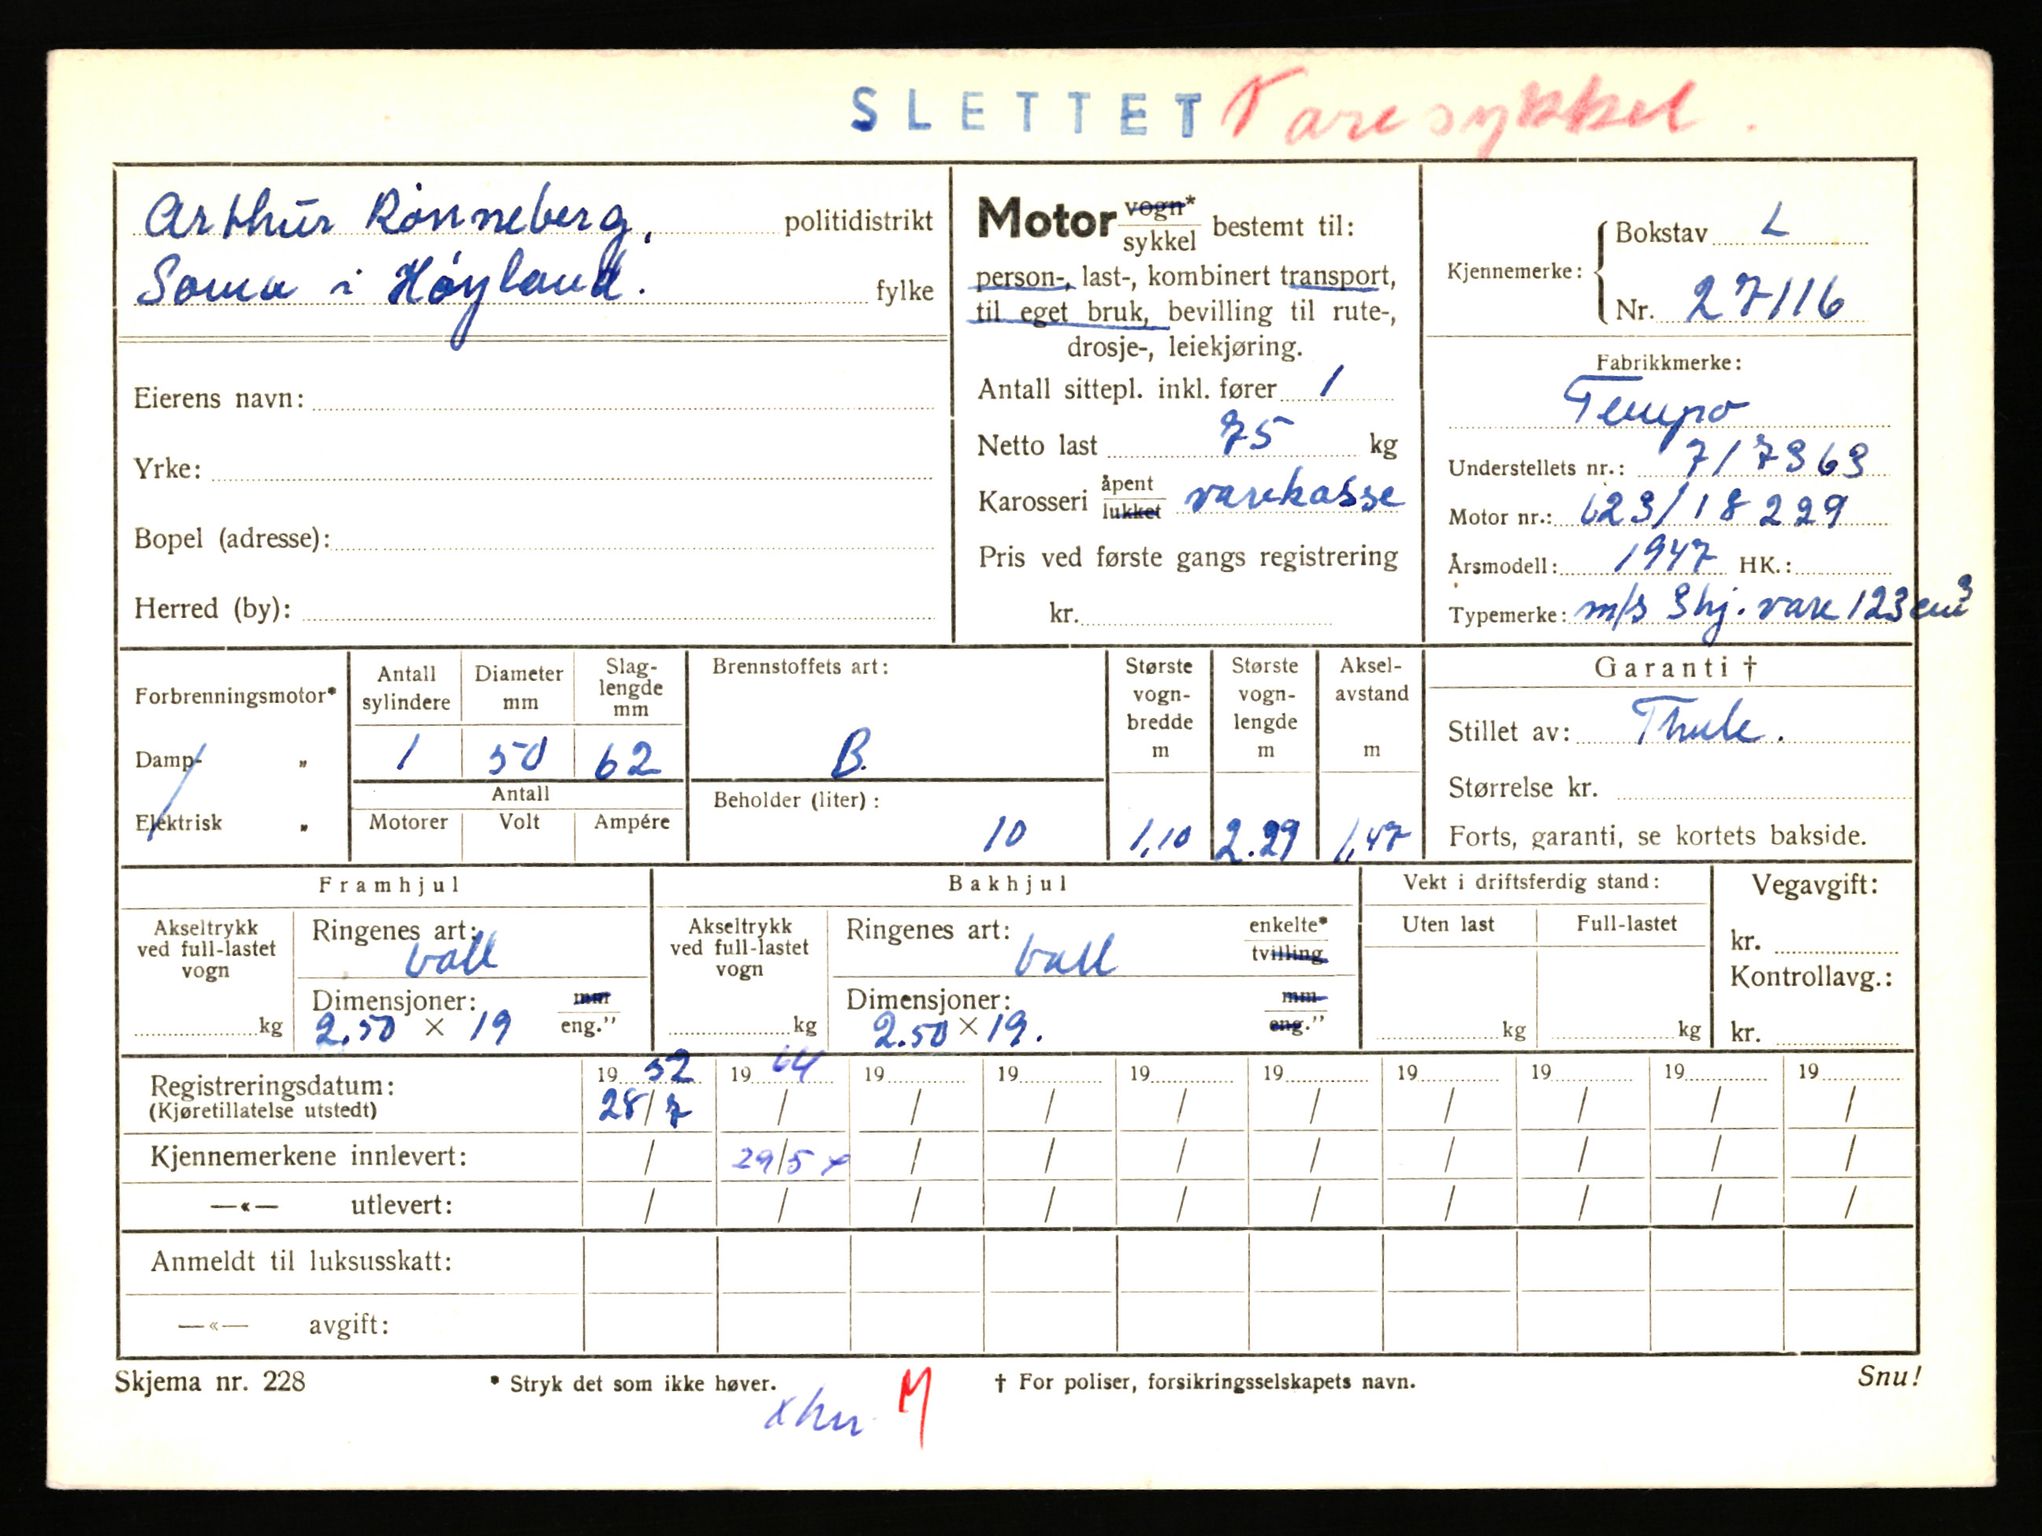 SLETTET Varesykkel.
Arthur Rönneberg, politidistrikt
Soma i Høyland. fylke
Eierens navn:
Yrke:
Bopel (adresse):
Herred (by):
Motor vogn* sykkel bestemt til:
person-, last-, kombinert transport,
til eget bruk, bevilling til rute-,
drosje-, leiekjøring.
Antall sittepl. inkl. fører 1
Netto last 75 kg
Karosseri åpent lukket varekasse
Pris ved første gangs registrering
kr.
Kjennemerke:
Bokstav L
Nr. 27116
Fabrikkmerke:
Tempo
Understellets nr.: 7/7363
Motor nr.: 623/18229
Årsmodell: 1947 HK.:
Typemerke: m/s 3hj. vare 123 cm³
Forbrenningsmotor*
Damp- „
Elektrisk „
Antall sylindere
Diameter mm
Slag-lengde mm
1 50 62
Antall
Motorer Volt Ampére
Brennstoffets art:
B.
Beholder (liter):
10
Største vogn-bredde m
1,10
Største vogn-lengde m
2.29
Aksel-avstand m
1,47
Garanti †
Stillet av: Thule.
Størrelse kr.
Forts, garanti, se kortets bakside.
Framhjul
Akseltrykk ved full-lastet vogn
kg
Ringenes art:
ball
Dimensjoner: mm
2.50 × 19 eng.”
Bakhjul
Akseltrykk ved full-lastet vogn
kg
Ringenes art: enkelte*
ball tvilling
Dimensjoner: mm
2.50 × 19. eng.”
Vekt i driftsferdig stand:
Uten last Full-lastet
kg kg
Vegavgift:
kr.
Kontrollavg.:
kr.
Registreringsdatum: 19 52 19 64 19 19 19 19 19 19 19 19
(Kjøretillatelse utstedt) 28/7 / / / / / / / / /
Kjennemerkene innlevert: / 29/5 / / / / / / / /
—«— utlevert: / / / / / / / / / /
Anmeldt til luksusskatt:
—«— avgift:
Skjema nr. 228 * Stryk det som ikke høver. † For poliser, forsikringsselskapets navn. Snu!
M